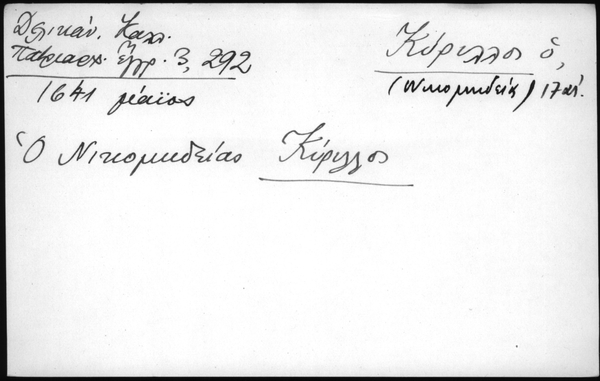 Δελικάν. Καλλ.
Πατριαρχ. Έγγρ. 3, 292
1641 μάϊος
Κύριλλος ὁ,
(Νικομηδείας) 17 αἰ.
Ὁ Νικομηδείας Κύριλλος